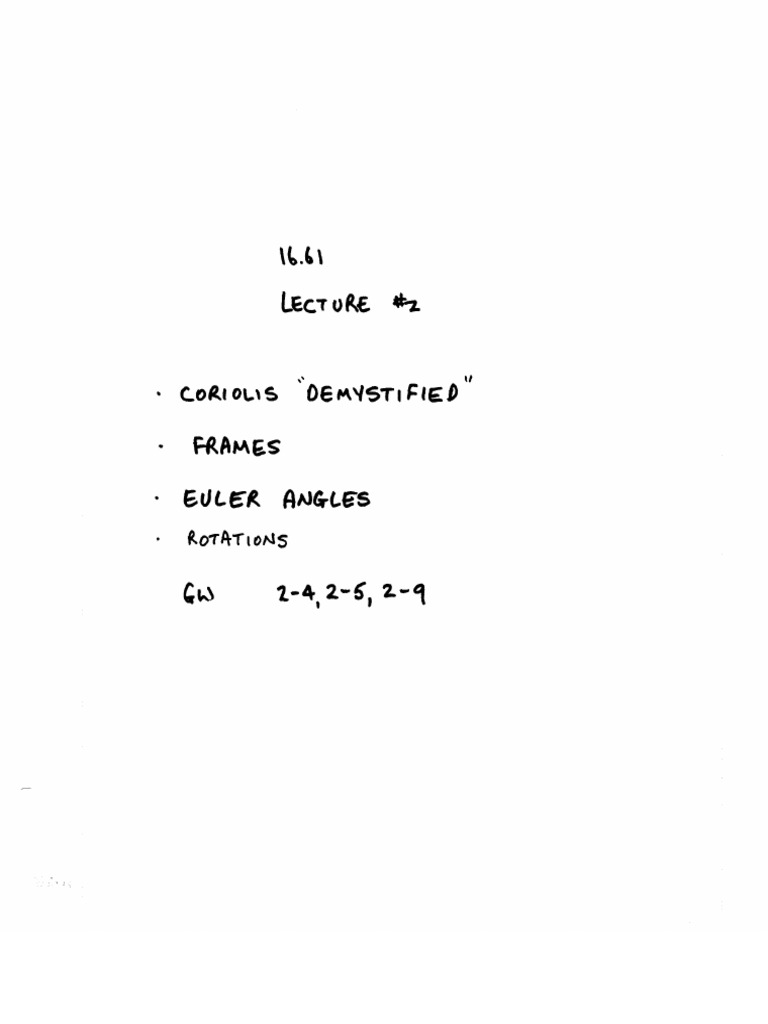 16.61
LECTURE #2
· CORIOLIS "DEMYSTIFIED"
· FRAMES
· EULER ANGLES
· ROTATIONS
GW 2-4, 2-5, 2-9